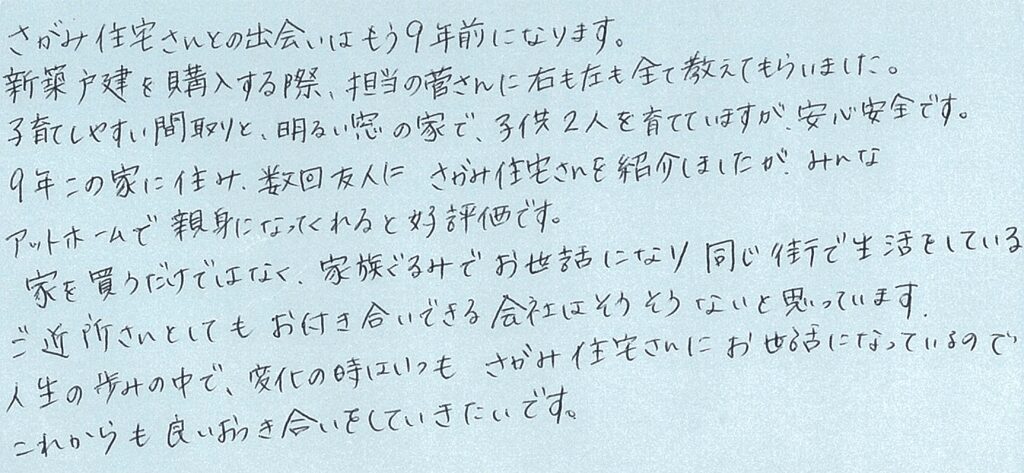 さがみ住宅さんとの出会いはもう9年前になります。
新築戸建を購入する際、担当の菅さんに右も左も全て教えてもらいました。
子育てしやすい間取りと、明るい窓の家で、子供2人を育てていますが、安心安全です。
9年この家に住み、数回友人に さがみ住宅さんを紹介しましたが、みんな
アットホームで親身になってくれると好評価です。
家を買うだけではなく、家族ぐるみでお世話になり 同じ街で生活をしている
ご近所さんとしても お付き合いできる会社はそうそうないと思っています。
人生の歩みの中で、変化の時はいつも さがみ住宅さんにお世話になっているので
これからも良いおつき合いをしていきたいです。